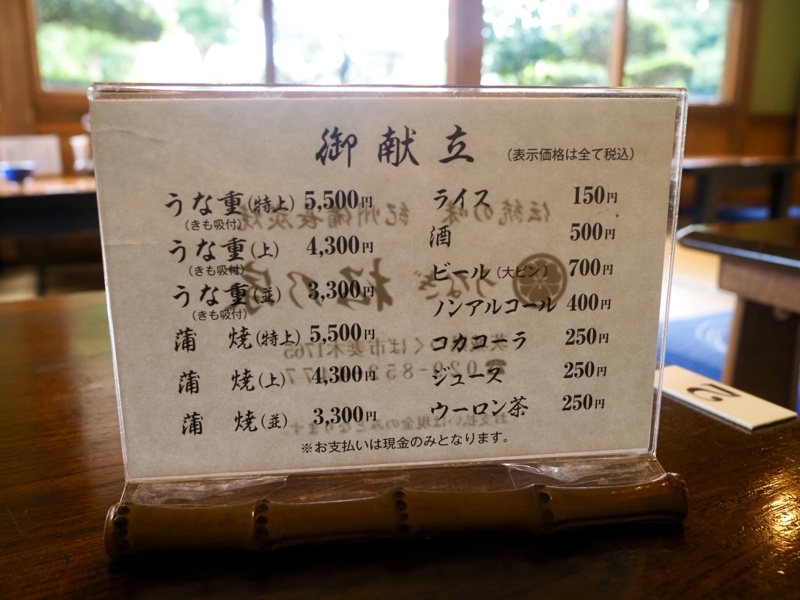 御献立
(表示価格は全て税込)
うな重(特上) 5,500円
(きも吸付)
うな重(上) 4,300円
(きも吸付)
うな重(並) 3,300円
(きも吸付)
蒲焼(特上) 5,500円
蒲焼(上) 4,300円
蒲焼(並) 3,300円
ライス 150円
酒 500円
ビール(大ビン) 700円
ノンアルコール 400円
コカコーラ 250円
ジュース 250円
ウーロン茶 250円
※お支払いは現金のみとなります。
2